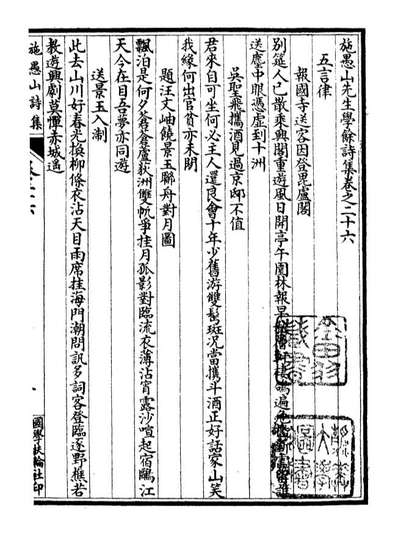 施愚山先生學餘詩集卷之二十六
五言律
報國寺送客因登毘盧閣
別筵人已散乘興閣重遊風日開亭午園林報早
送塵中眼憑虛到十洲
吳聖飛攜酒見過京邸不值
君來自可坐何必主人還良會十年少舊游雙鬢斑況當攜斗酒正好話家山笑
我緣何出官貧亦未閒
題汪文岫饒景玉聯舟對月圖
飄泊是何夕蒼蒼蘆荻洲雙帆爭挂月孤影對臨流衣薄沾宵露沙喧起宿鷗江
天今在目吾夢亦同遊
送景玉入淛
此去山川好春光換柳條衣沾天目雨席挂海門潮問訊多詞客登臨逐野樵若
教遊興劇莫憚赤城遙
施愚山詩集
國學扶輪社印